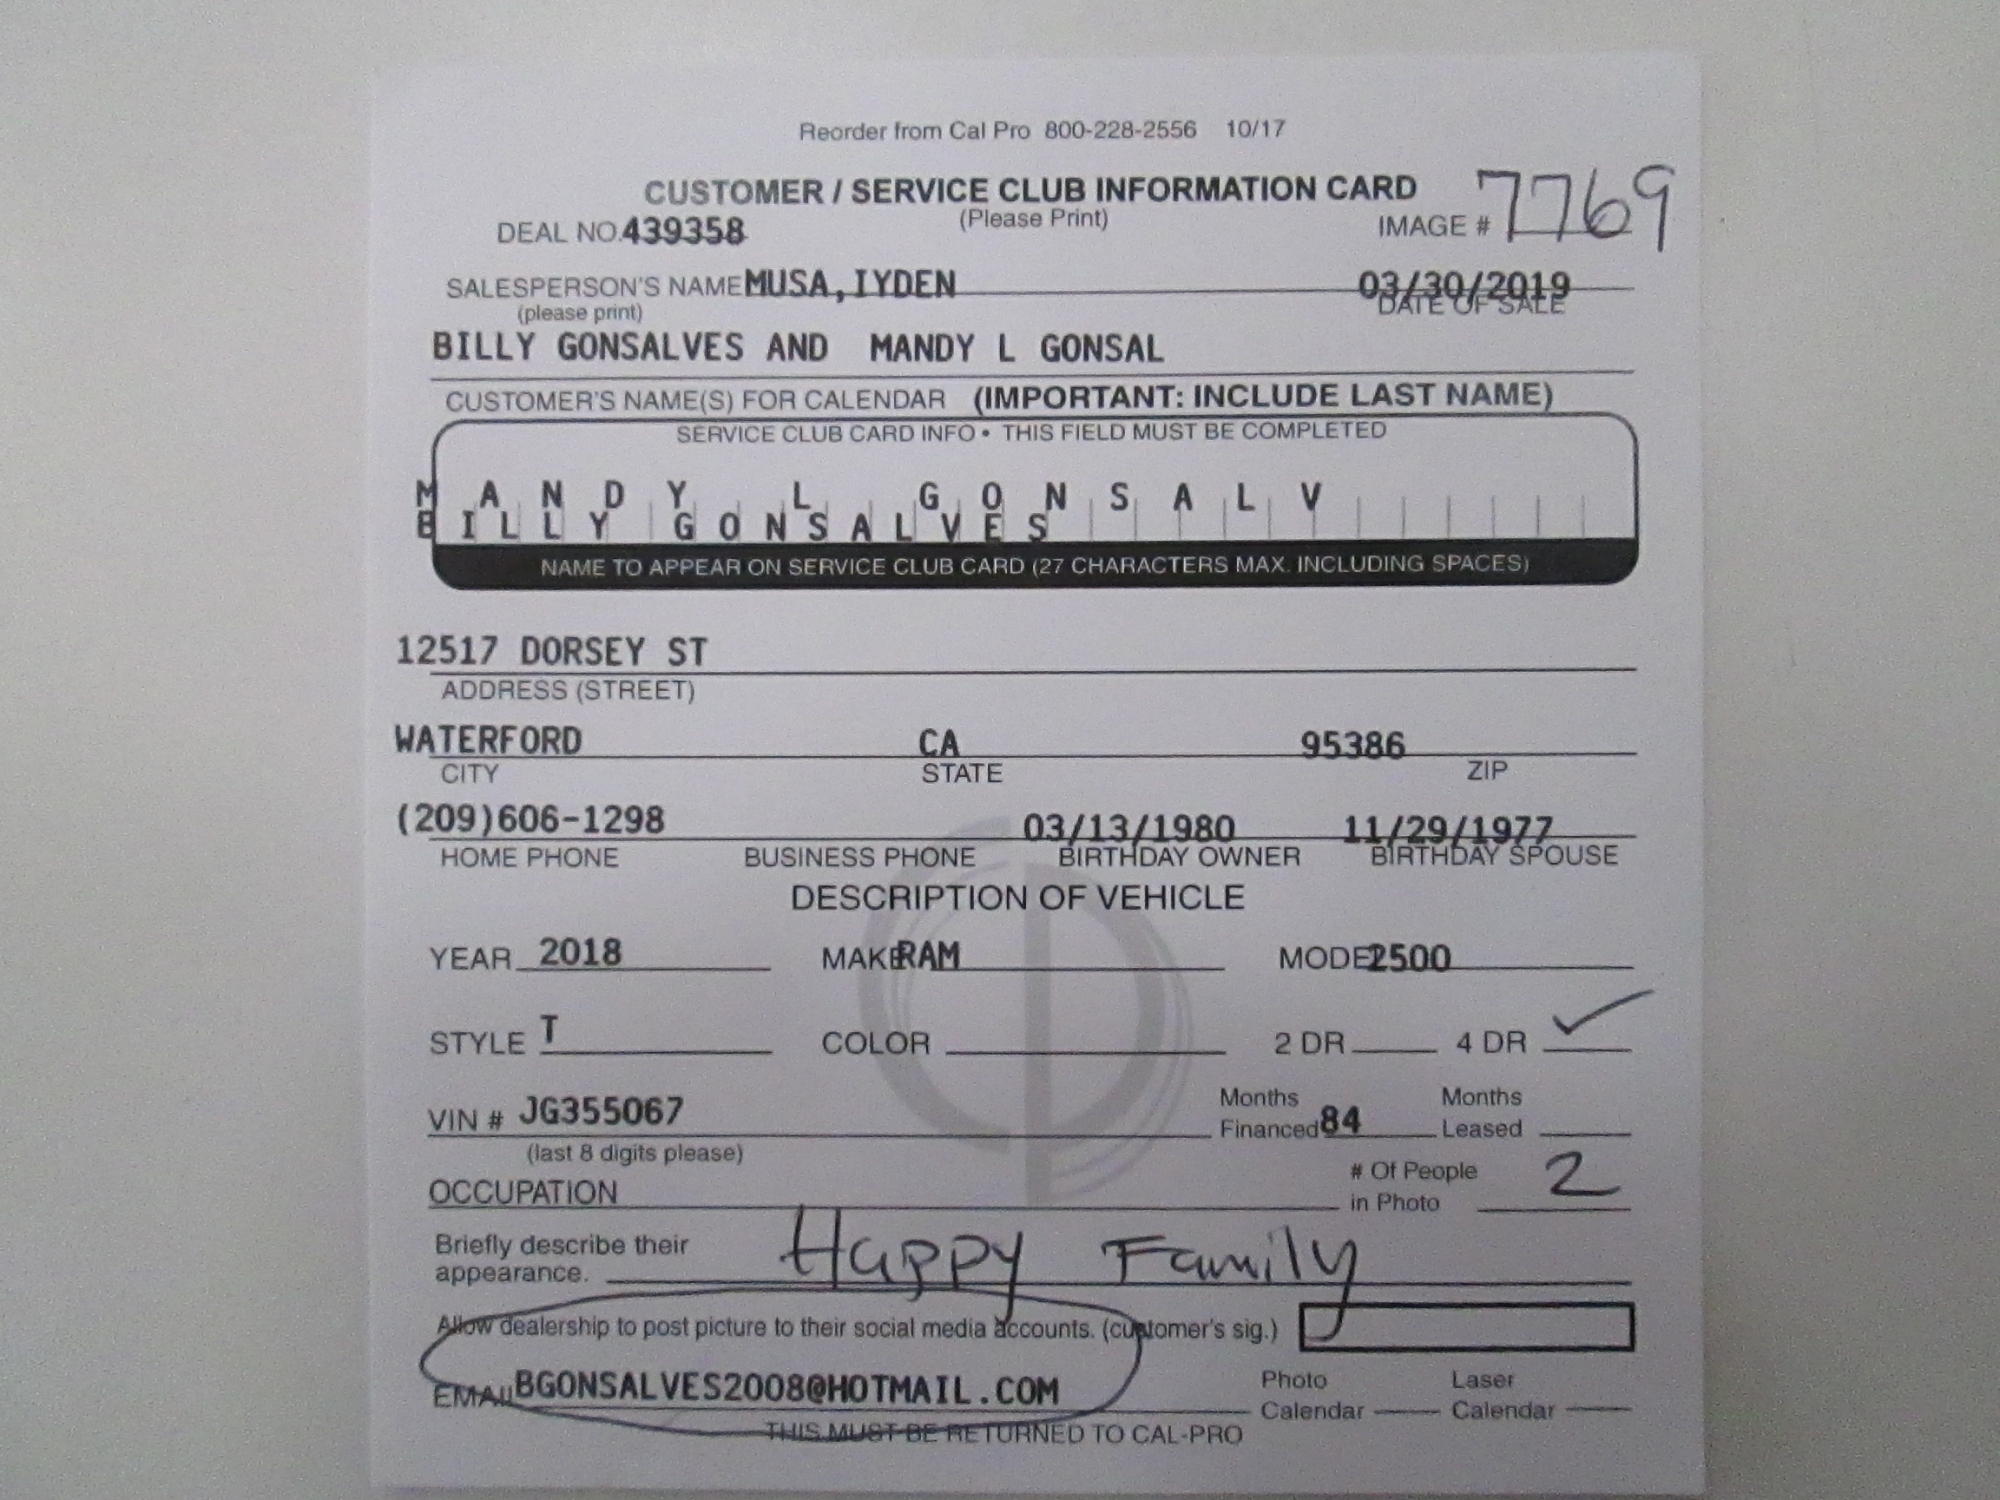 Reorder from Cal Pro 800-228-2556 10/17
CUSTOMER / SERVICE CLUB INFORMATION CARD
(Please Print)
DEAL NO. 439358 IMAGE # 7769
SALESPERSON'S NAME MUSA, IYDEN 03/30/2019
(please print) DATE OF SALE
BILLY GONSALVES AND MANDY L GONSAL
CUSTOMER'S NAME(S) FOR CALENDAR (IMPORTANT: INCLUDE LAST NAME)
SERVICE CLUB CARD INFO • THIS FIELD MUST BE COMPLETED
MANDY L GONSALV
BILLY GONSALVES
NAME TO APPEAR ON SERVICE CLUB CARD (27 CHARACTERS MAX. INCLUDING SPACES)
12517 DORSEY ST
ADDRESS (STREET)
WATERFORD CA 95386
CITY STATE ZIP
(209)606-1298 03/13/1980 11/29/1977
HOME PHONE BUSINESS PHONE BIRTHDAY OWNER BIRTHDAY SPOUSE
DESCRIPTION OF VEHICLE
YEAR 2018 MAKE RAM MODEL 2500
STYLE T COLOR 2 DR 4 DR ✓
VIN # JG355067 Months Financed 84 Months Leased
(last 8 digits please)
OCCUPATION # Of People in Photo 2
Briefly describe their appearance. Happy Family
Allow dealership to post picture to their social media accounts. (customer's sig.)
EMAIL BGONSALVES2008@HOTMAIL.COM Photo Calendar Laser Calendar
THIS MUST BE RETURNED TO CAL-PRO